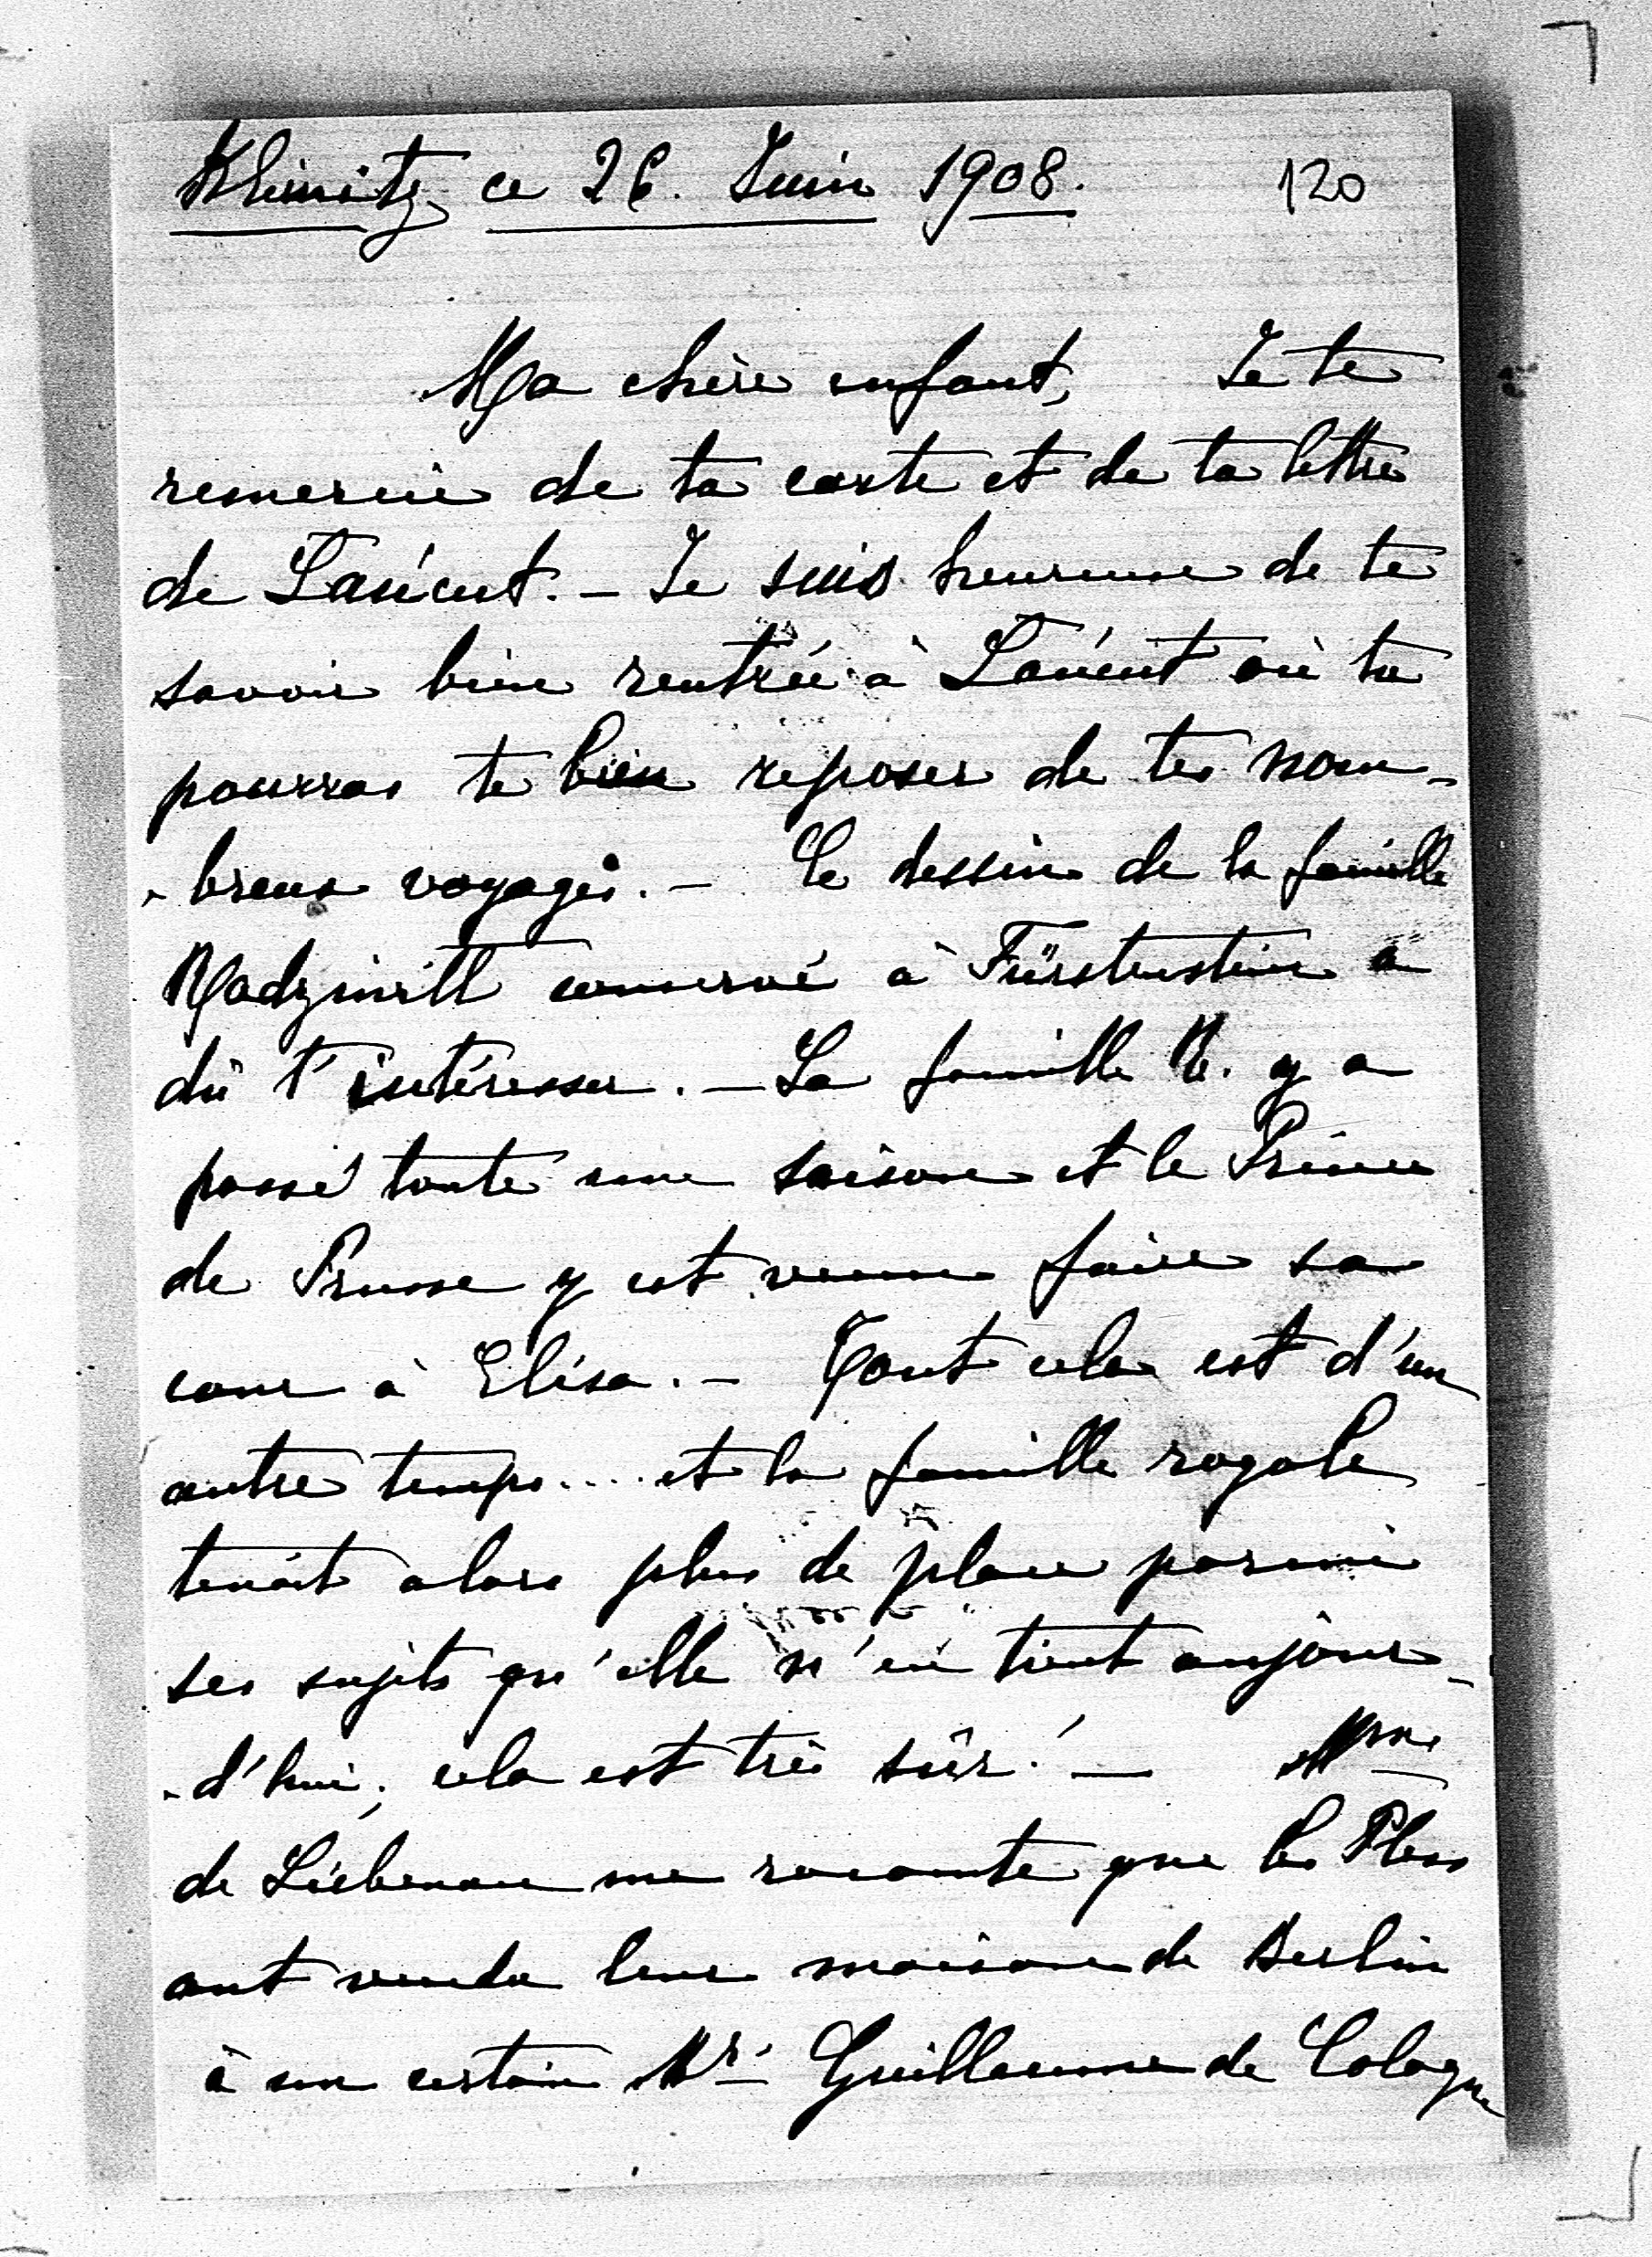 Kleinitz, ce 26. Juin 1908.
120
Ma chère enfant, Je te
remercie de ta carte et de ta lettre
de Lańcut. – Je suis heureuse de te
savoir bien rentrée à Lańcut où tu
pourras te bien reposer de tes nom-
-breux voyages. – Le dessin de la famille
Radziwill conservé à Fürstenstein a
dû t'intéresser. – La famille R. y a
passé toute une saison et le Prince
de Prusse y est venu faire sa
cour à Elisa. – Tout cela est d'un
autre temps.... et la famille royale
tenait alors plus de place parmi
ses sujets qu'elle n'en tient aujour-
-d'hui; cela est très sûr! – Mme
de Liebenau me raconte que les Pless
ont vendu leur maison de Berlin
à un certain Mr. Guillaume de Cologne